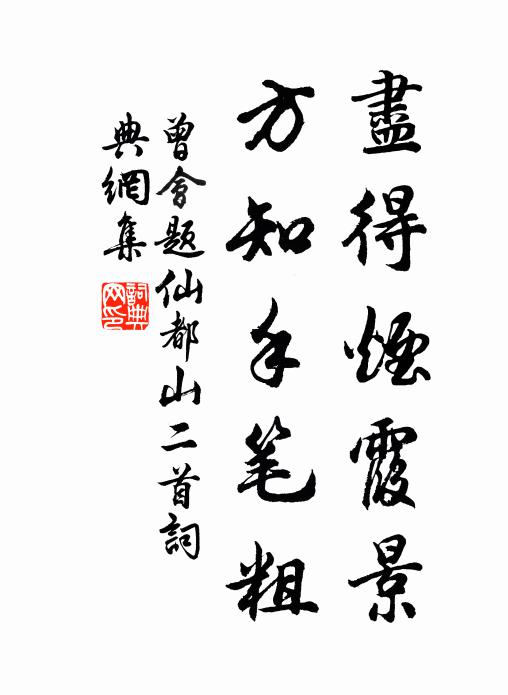 盡得煙霞景
方知手笔粗
曾會题仙都山二首詞
典網集
詞典
网印